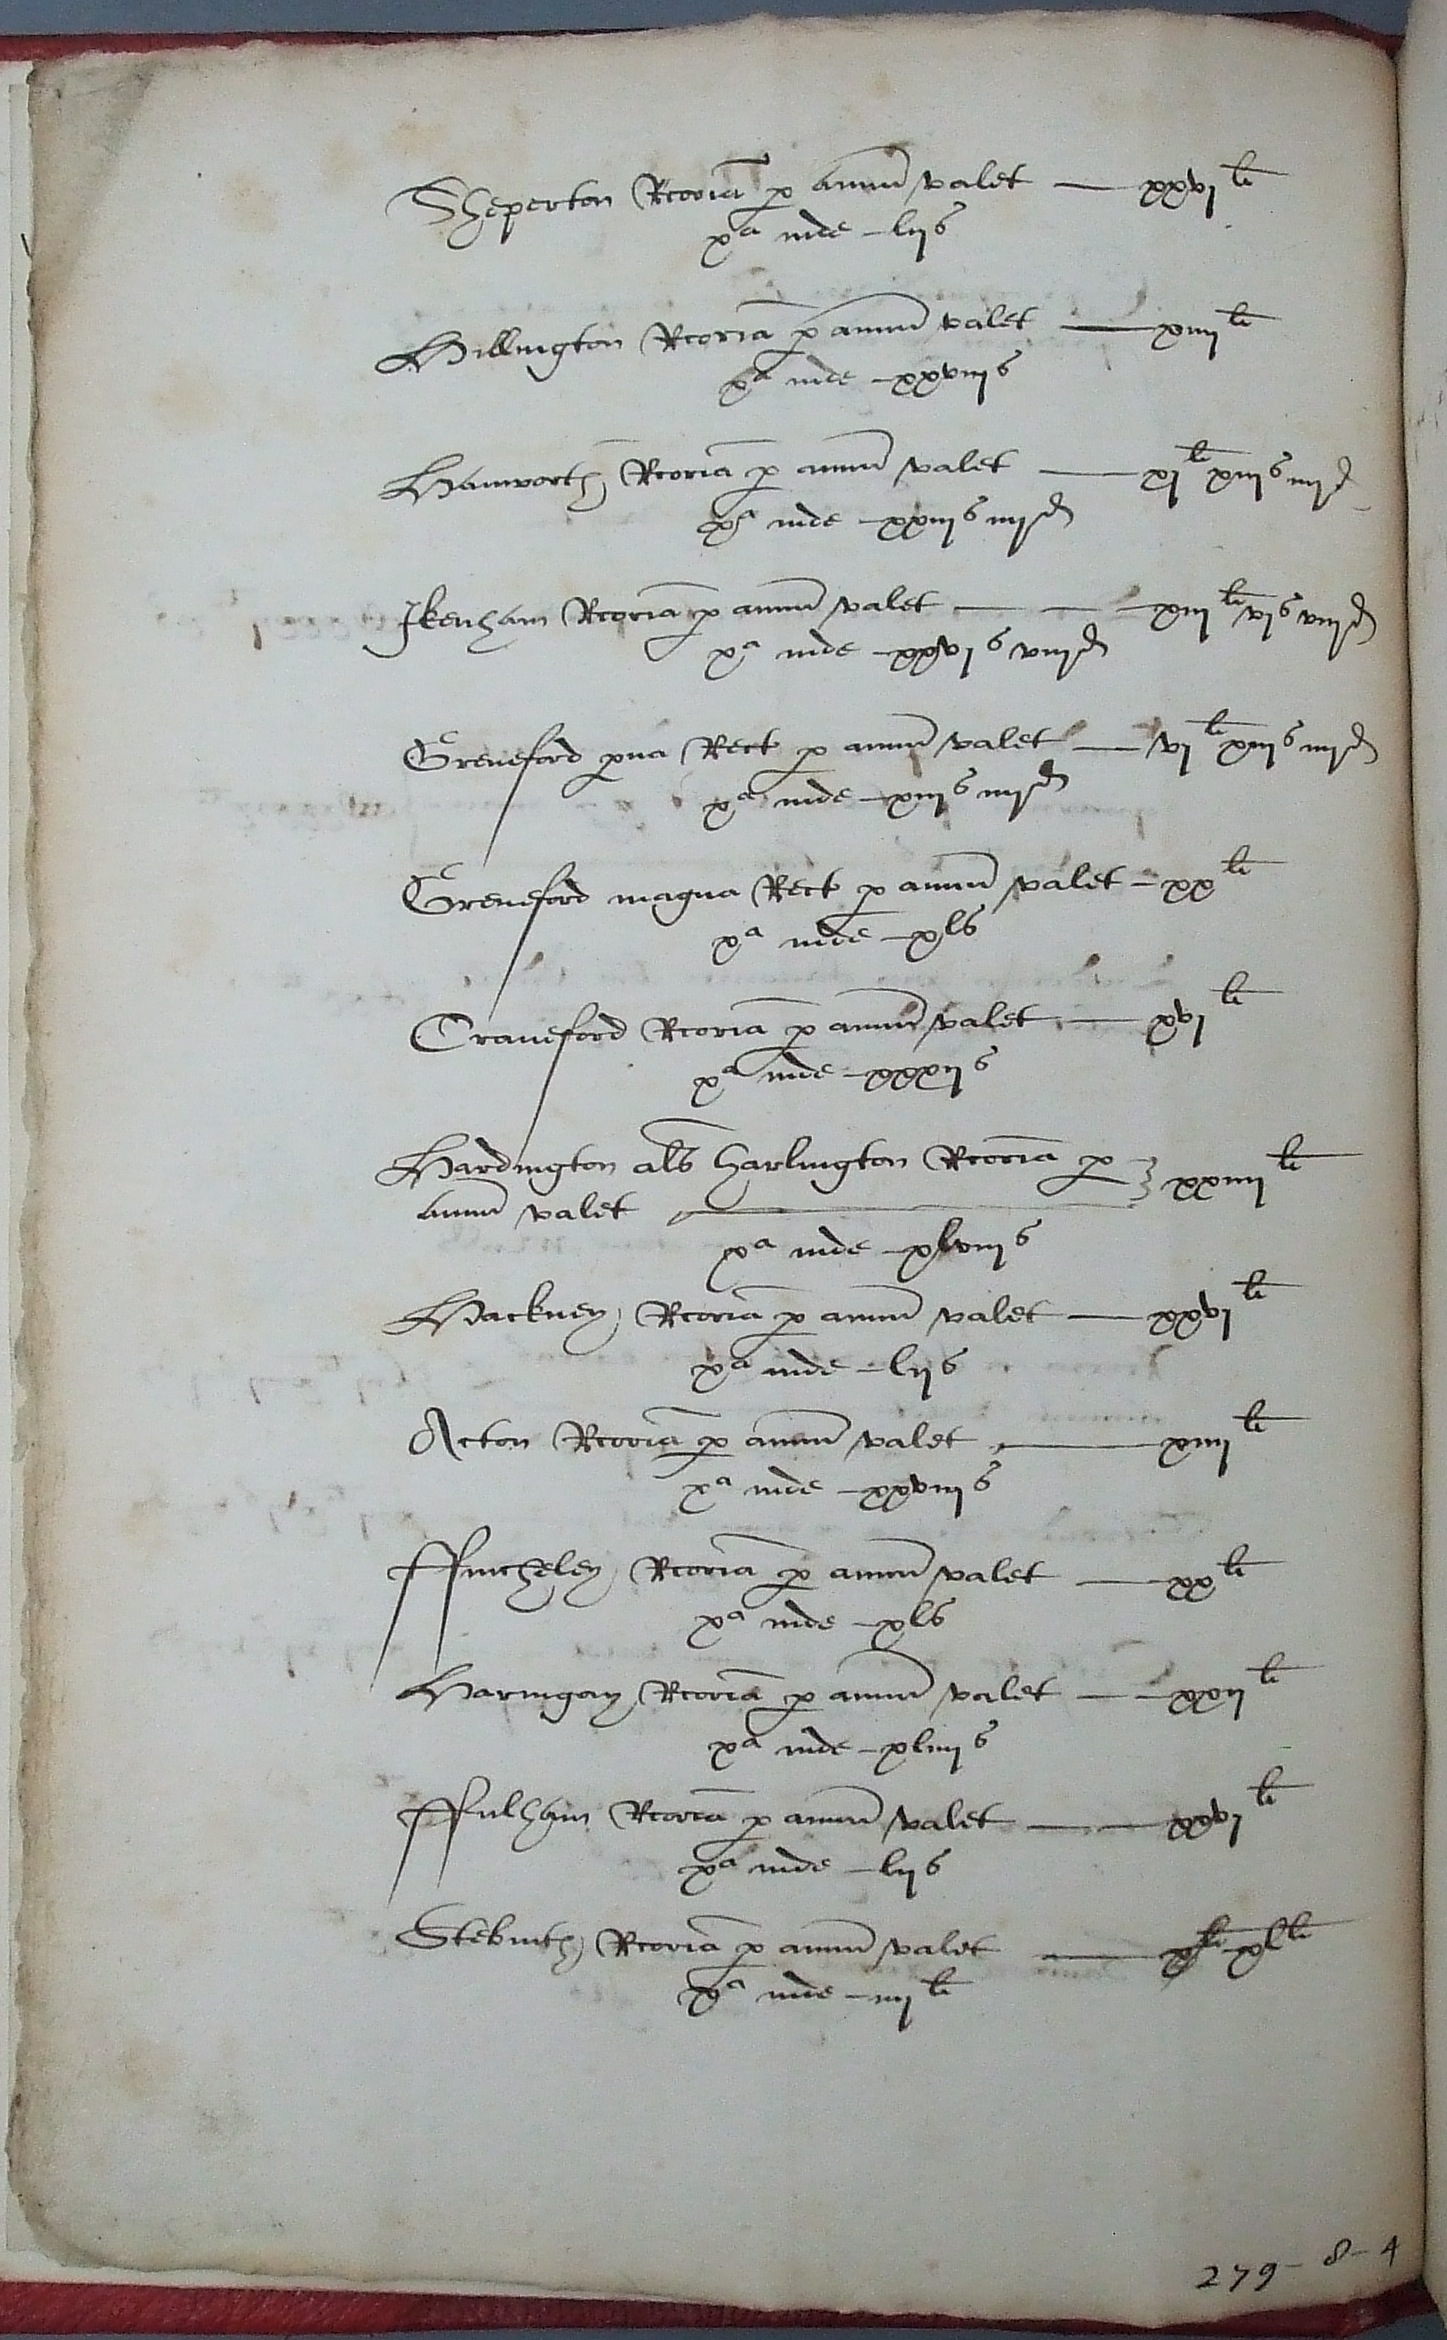 Sheperton Rcoria p annu valet — xxvj li
xa inde – lijs
Hillington Rcoria p annu valet — xiiij li
xa inde – xxviijs
Hanworth Rcoria p annu valet — xj li xiijs iiijd
xa inde – xxiijs iiijd
Ikenham Rcoria p annu valet — — – xiij li vjs viijd
xa inde – xxvjs viijd
Greneford pua Rect p annu valet — vj li xiijs iiijd
xa inde – xiijs iiijd
Greneford magna Rect p annu valet – xx li
xa inde – xls
Craneford Rcoria p annu valet — xvj li
xa inde – xxxijs
Hardington als harlington Rcoria p
annu valet — xxiiij li
xa inde – xlviijs
Hackney Rcoria p annu valet — xxvj li
xa inde – lijs
Acton Rcoria p annu valet — xiiij li
xa inde – xxviijs
ffincheley Rcoria p annu valet — xx li
xa inde – xls
Haringay Rcoria p annu valet — – xxij li
xa inde – xliiijs
ffulham Rcoria p annu valet — — xxvj li
xa inde – lijs
Stebinth Rcoria p annu valet — xl li
xa inde – iiij li
279 - 8 - 4